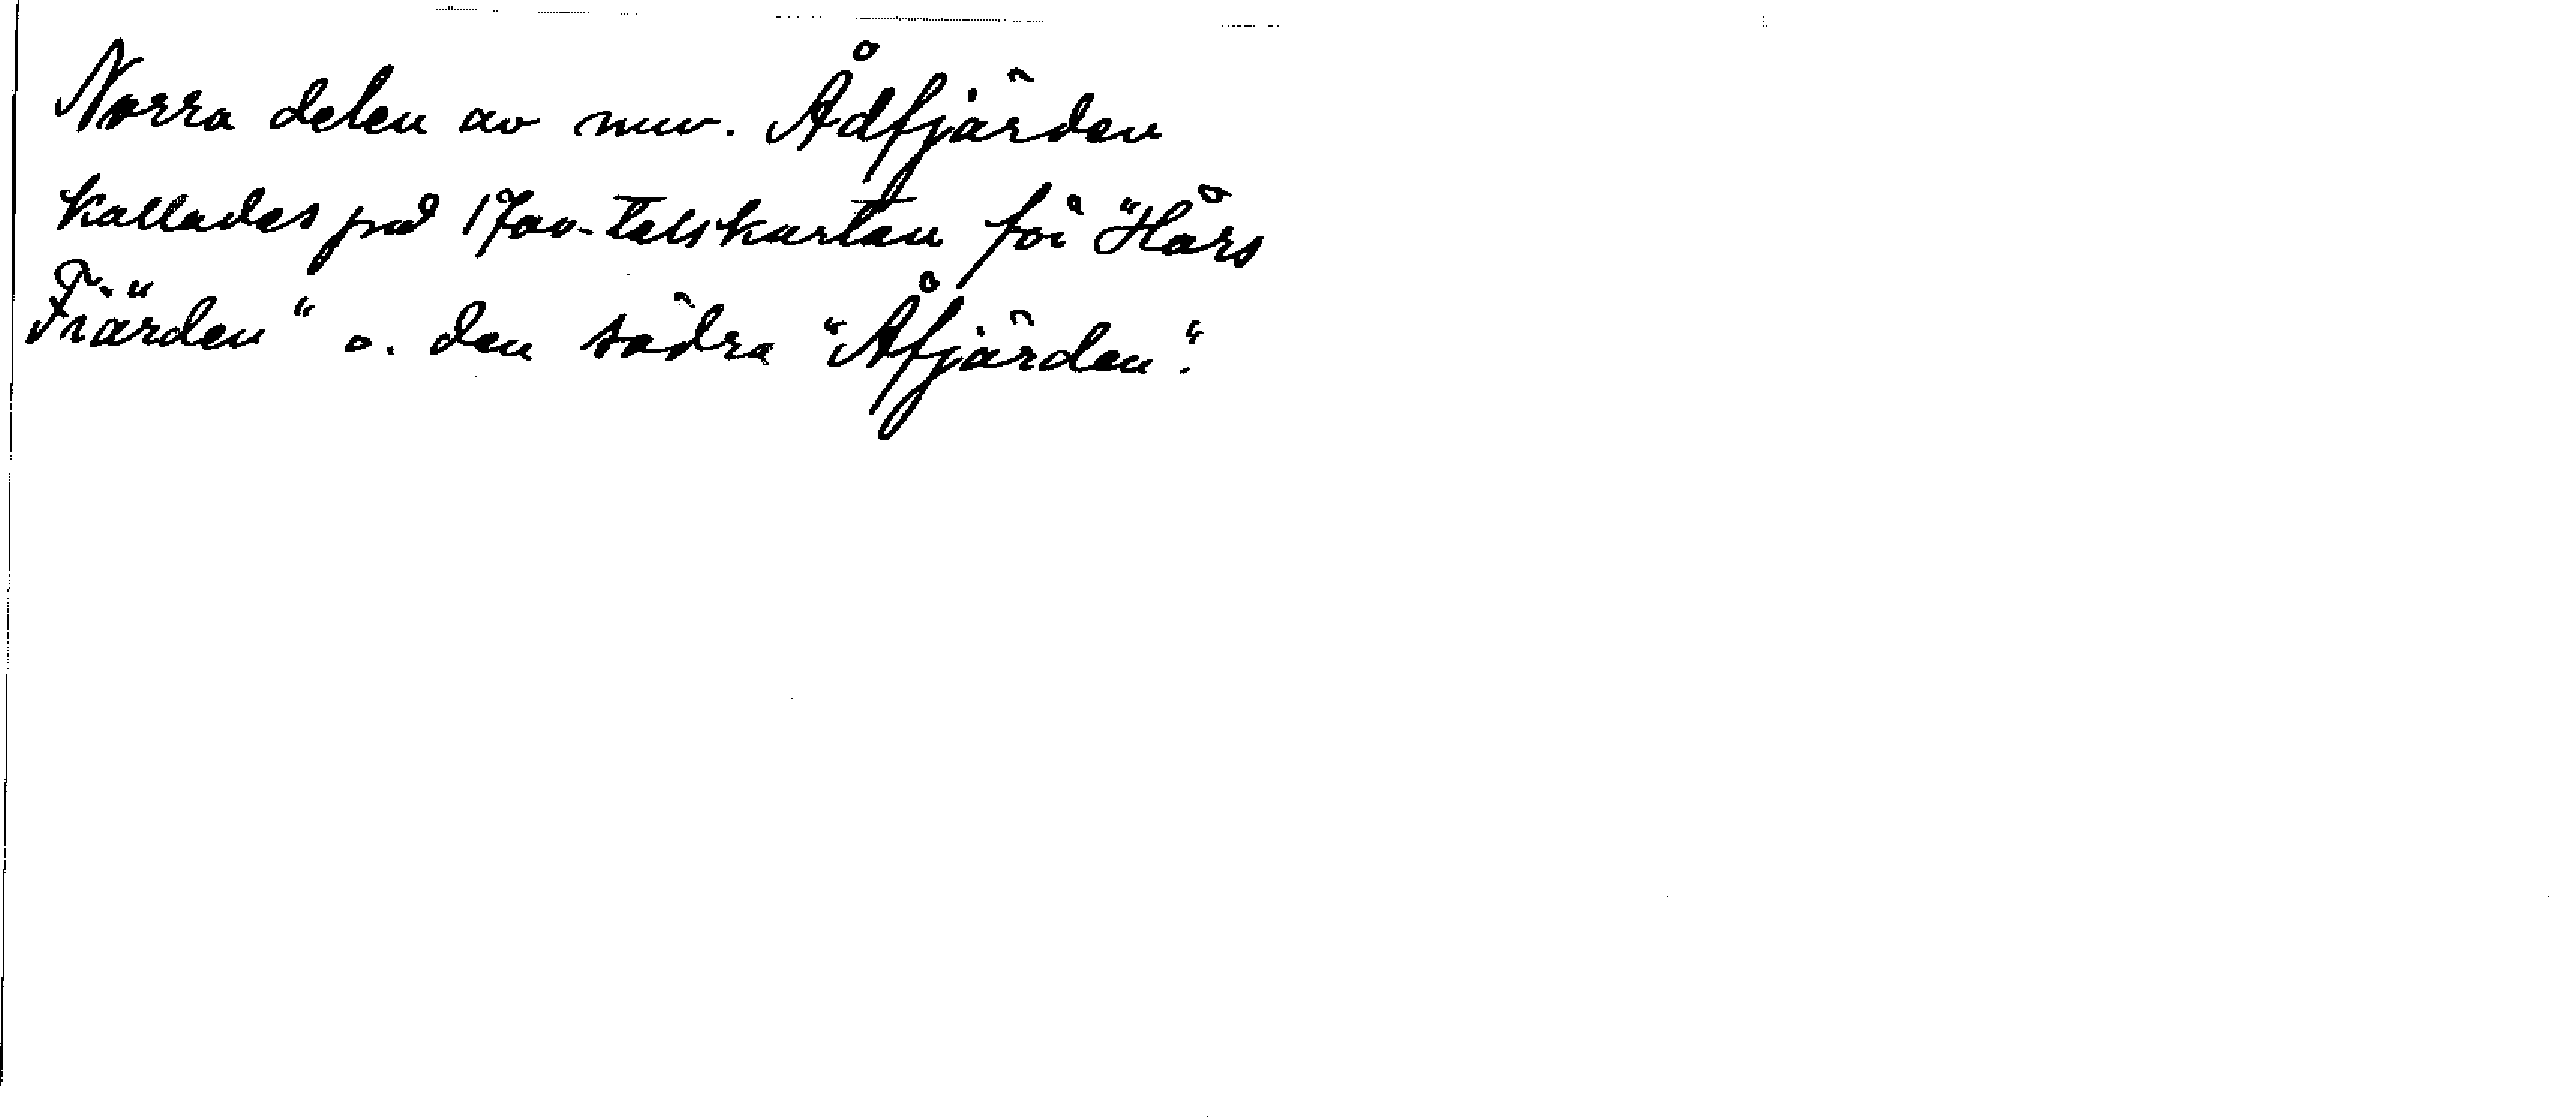 Norra delen av nuv. Ådfjärden
kallades på 1700-talskartan för "Hårs
Fiärden" o. den södra "Åfjärden".